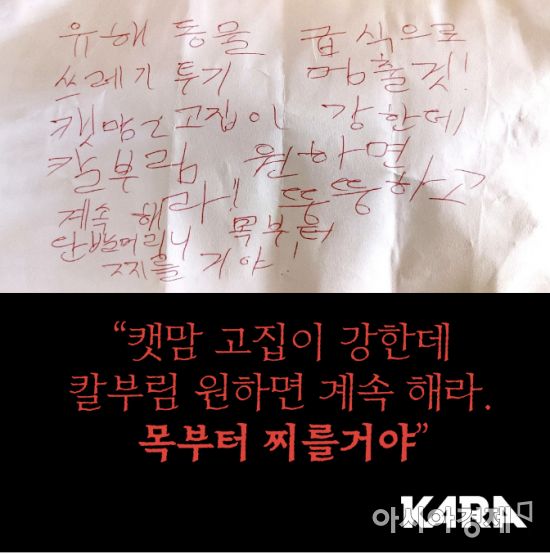 유해동물 급식으로
쓰레기 투기 멈출것!
캣맘 고집이 강한데
칼부림 원하면
계속 해라! 뚱뚱하고
단발머리니 목부터
찌를 거야!
“캣맘 고집이 강한데
칼부림 원하면 계속 해라.
목부터 찌를거야”
KARA
아시아경제